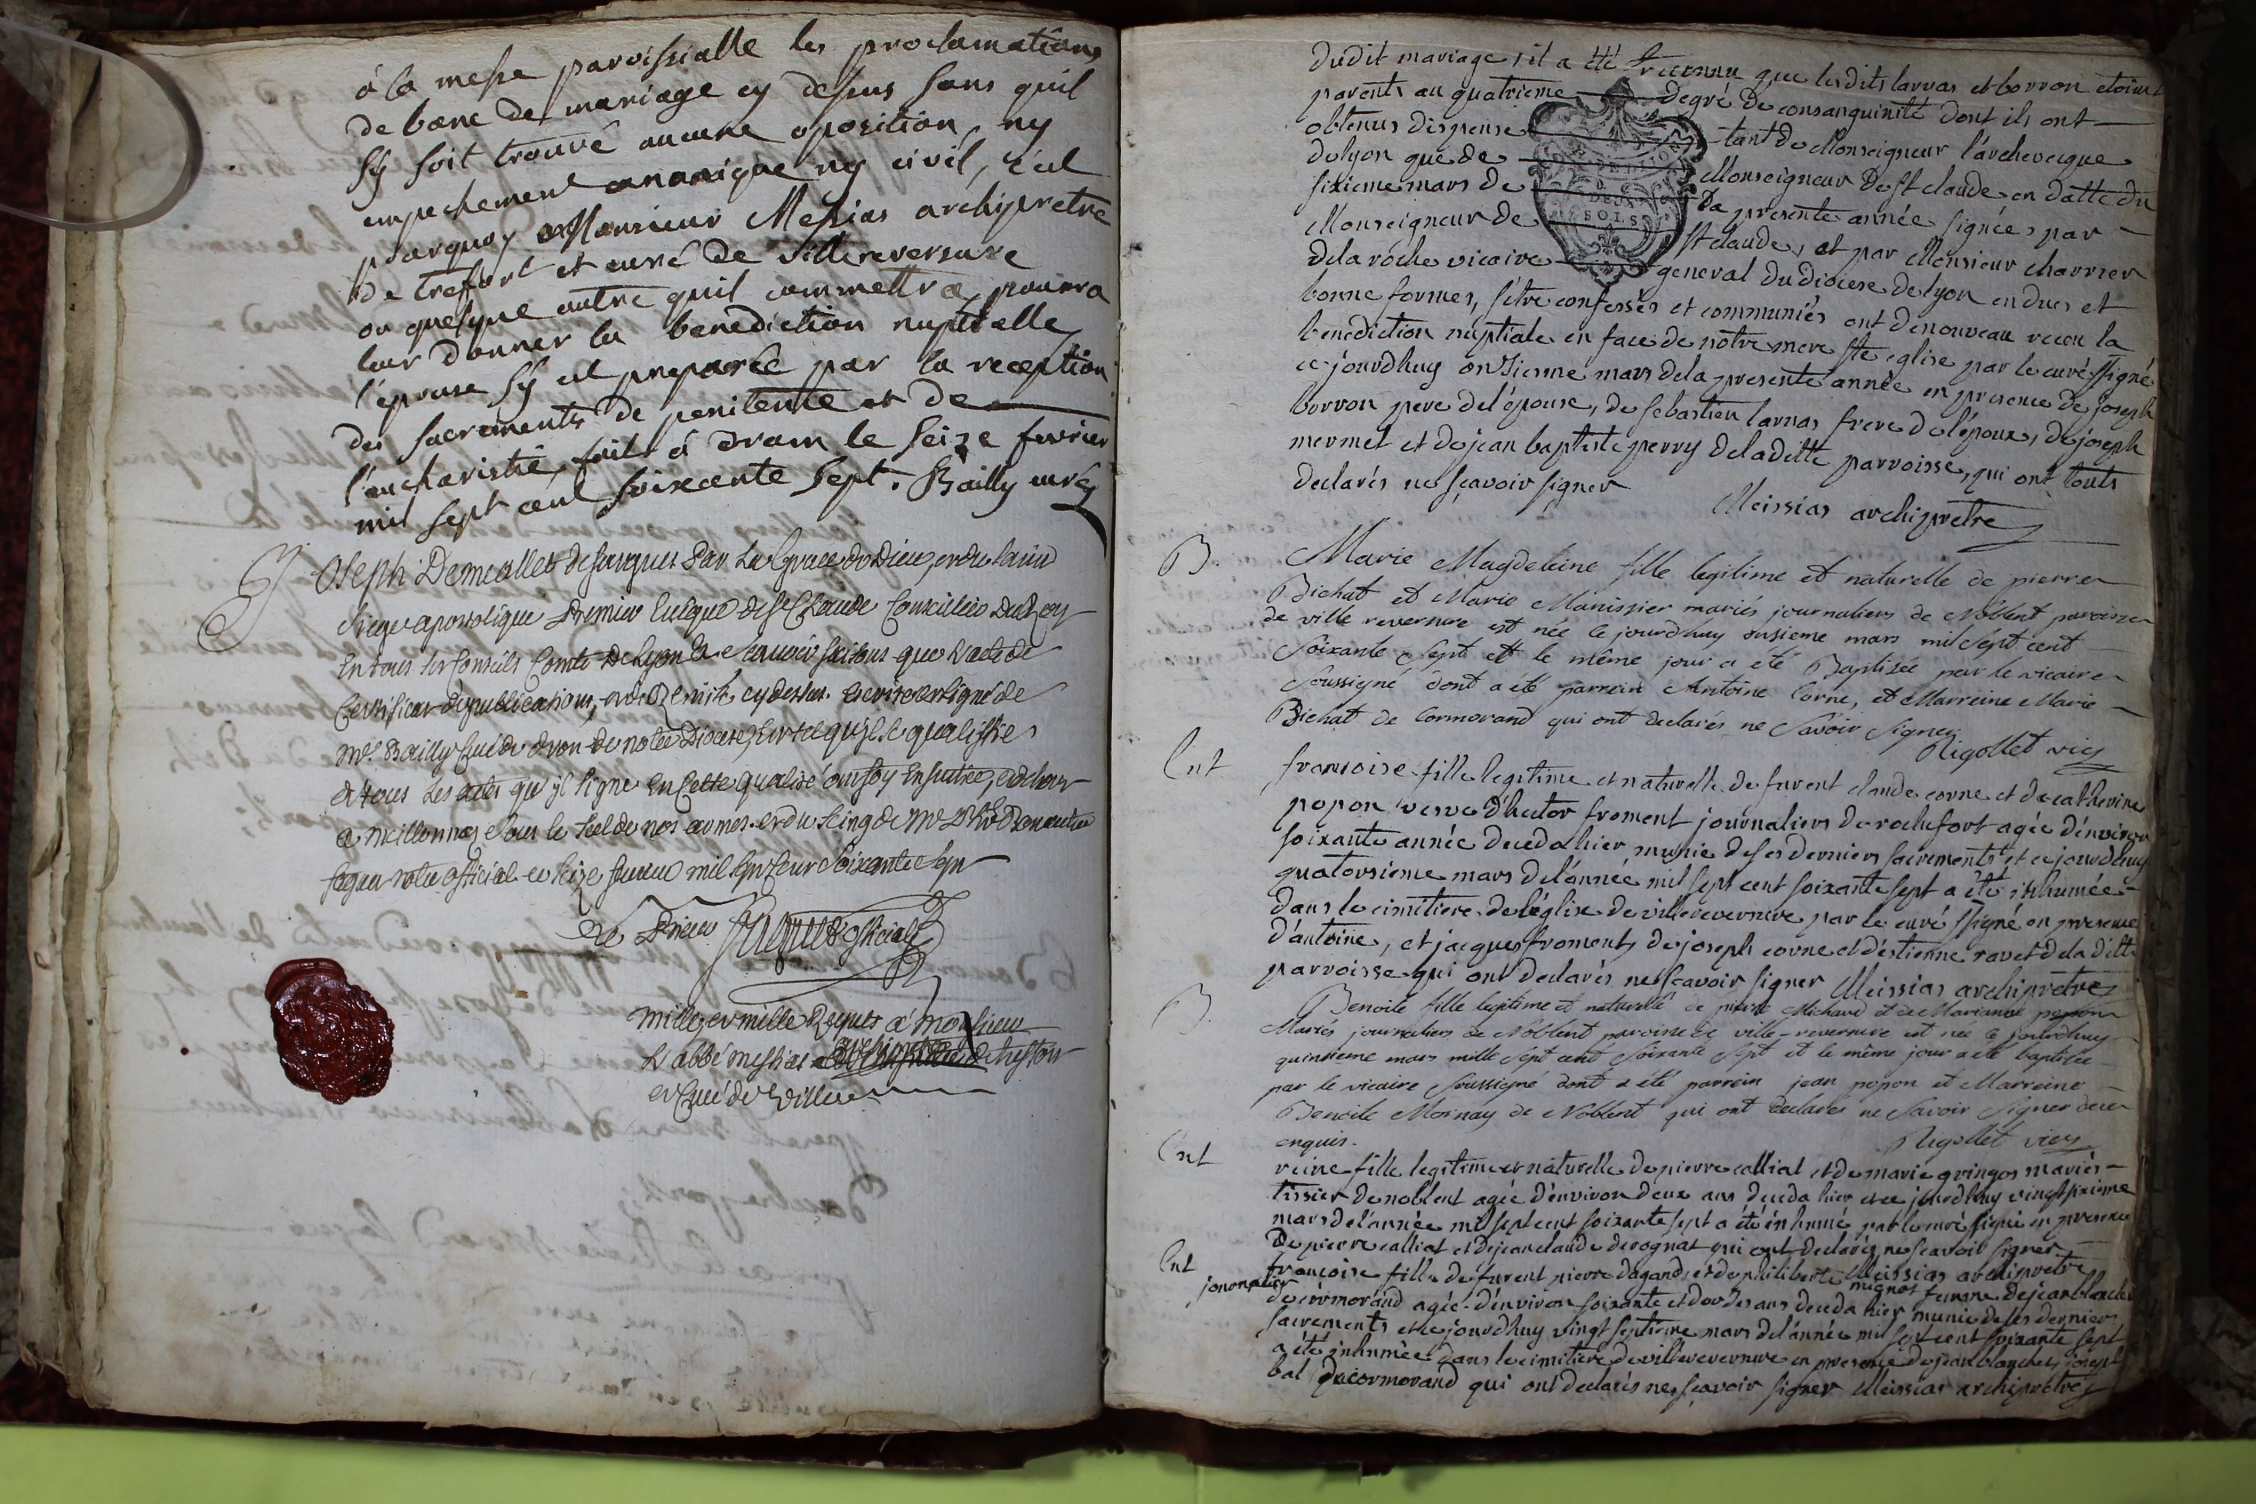 à la messe paroissialle les proclamations
de banc de mariage cy dessus sans quil
sy soit trouvé aucune oposition, ny
empechement canonique ny civil, c'est
pourquoy Monsieur Messias archipretre
de treffort et curé de villereversure
ou quelque autre quil commettra, pourra
leur donner la benediction nuptialle
l'épouse sy est preparée par la reception
des sacrements de penitente et de
l'eucharistie, fait à dram le seize fevrier
mil sept cent soixcente sept. Bailly curé
Joseph Demeallet de fargues Par La Grace de Dieu, et du saint
siege apostolique Premier Evêque de st Claude Conseiller du Roy
En tous ses Conseils Comte de Lyon &c sçavoir faisons que l'acte de
Certificat de publications, et de Remise cy dessus Escrit et signé de
Mre Bailly Curé de dron de notre Diocese, Est tel qu'il se qualiffie
et tous les actes qu'il signe En Cette qualité ont foy
a Meillonnas sous le scel de nos armes et du seing de Mre
notre official ce seize fevrier mil sept cent soixante sept
Le Prieur official
mille et mille Respects a Monsieur
L'abbé messias archipretre de treffort
et Curé de Ville
dudit mariage, il a été reconnu que lesdits larvas et borron etoint
parents au quatrieme degré de consanguinité dont ils ont
obtenus dispense tant de Monseigneur l'archeveque
de lyon que de Monseigneur de st claude en datte du
sixieme mars de la presente année signées par
Monseigneur de st claude, et par Monsieur charrier
de la roche vicaire general du diocese de lyon en dues et
bonne formes, s'être confessés et communiés ont de nouveau recou la
benediction nuptiale en face de notre mere ste eglise par le curé ssigné
ce jourdhuy onzieme mars de la presente année en presence de joseph
borron pere de l'épouse, de sebastien larvas frere de l'époux, de joseph
mermet et de jean baptiste perry de la ditte parroisse, qui ont touts
declarés ne sçavoir signer
Meissias archipretre
DEUX
SOLS
B.
Marie Magdeleine fille legitime et naturelle de pierre
Bichat et Marie Manissier mariés journaliers de Noblent paroisse
de ville reversure est née ce jourdhuy onsieme mars mil sept cent
soixante sept et le même jour a été Baptisée par le vicaire
soussigné dont a été parrein Antoine Corne, et Marreine Marie
Bichat de Cormorand qui ont declarés ne savoir signer
Rigollet vic
Ent
francoise fille legitime et naturelle de furent claude corne et de catherine
popon vesve d'hector froment journaliers de rochefort agée d'environ
soixante année deceda hier munie de ses derniers sacrements et ce jourdhuy
quatorsieme mars de l'année mil sept cent soixante sept a été inhumée
dans le cimitiere de l'église de villereversure par le curé ssigné en presence
d'antoine, et jacques froments, de joseph corne et d'estienne ravet de la ditte
parroisse qui ont declarés ne sçavoir signer Meissias archipretre
B.
Benoite fille legitime et naturelle de pierre Michaud et de Marianne popon
Mariés journaliers de Noblent paroisse de ville-reversure est née ce jourdhuy
quinsieme mars mille sept cent soixante sept et le même jour a été baptisée
par le vicaire soussigné dont a été parrein jean popon et Marreine
Benoite Mornay de Noblent qui ont declarés ne savoir signer de ce
enquis.
Rigollet vic
Ent
reine fille legitime et naturelle de pierre calliat et de marie gringos mariés
tissier de noblent agée d'environ deux ans deceda hier et ce jourdhuy vingt sixieme
mars de l'année mil sept cent soixante sept a été inhumé par le curé ssigné en presence
de pierre calliat et de jean claude derognat qui ont declarés ne sçavoir signer
Meissias archipretre
Ent
francoise fille de furent pierre dagand, et de philiberte mignot femme de jean blanchet
journalier
de cormorand agée d'environ soixante et douzes ans deceda hier munie de ses dernier
sacrements et ce jourdhuy vingt septieme mars de l'année mil sept cent soixante sept
a été inhumée dans le cimitiere de villereversure en presence de jean blanchet, joseph
bal de cormorand qui ont declarés ne sçavoir signer Meissias archipretre